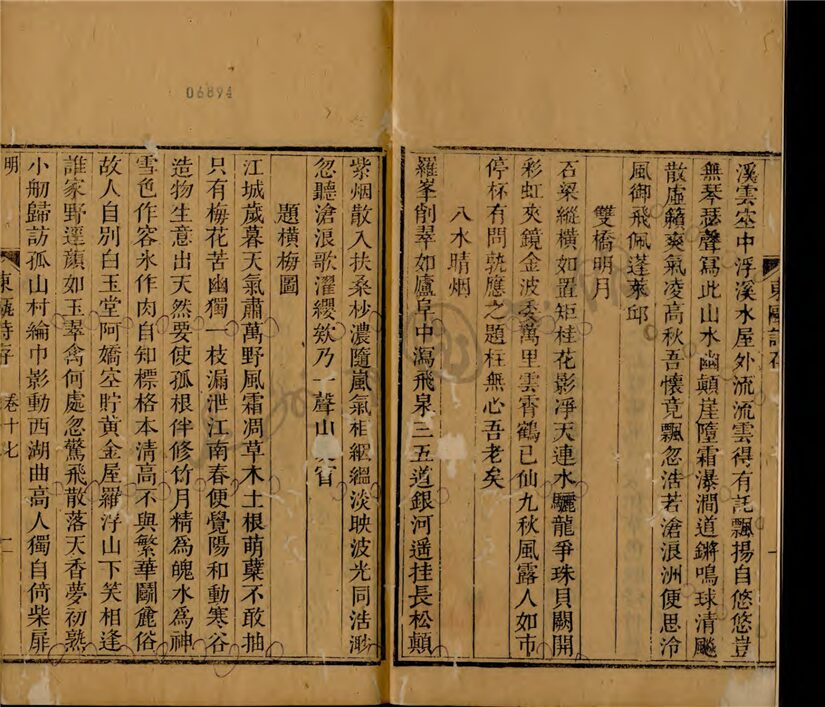 溪雲空中浮溪水屋外流流雲得有託飄揚自悠悠豈
無琴瑟聲寫此山水幽顛崖墮霜瀑澗道鏘鳴球清飈
散虛籟爽氣凌高秋吾懷竟飄忽浩若滄浪洲便思泠
風御飛佩蓬萊邱
雙橋明月
石梁縱橫如置矩桂花影凈天連水驪龍爭珠貝闕開
彩虹夾鏡金波委萬里雲霄鶴已仙九秋風露人如市
停杯有問孰應之題柱無心吾老矣
八水晴烟
羅峯削翠如廬阜中瀉飛泉三五道銀河遥挂長松顛
紫烟散入扶桑杪濃隨嵐氣相絪縕淡映波光同浩渺
忽聽滄浪歌濯纓欸乃一聲山
題橫梅圖
江城歲暮天氣肅萬野風霜凋草木土根萌蘖不敢抽
只有梅花苦幽獨一枝漏泄江南春便覺陽和動寒谷
造物生意出天然要使孤根伴修竹月精為魄水為神
雪色作容氷作肉自知標格本清高不與繁華鬭麄俗
故人自別白玉堂阿嬌空貯黃金屋羅浮山下笑相逢
誰家野邅顏如玉翠禽何處忽驚飛散落天香夢初熟
小舠歸訪孤山村綸巾影動西湖曲高人獨自倚柴扉
明
東甌詩存
卷十七
東甌詩存
06894